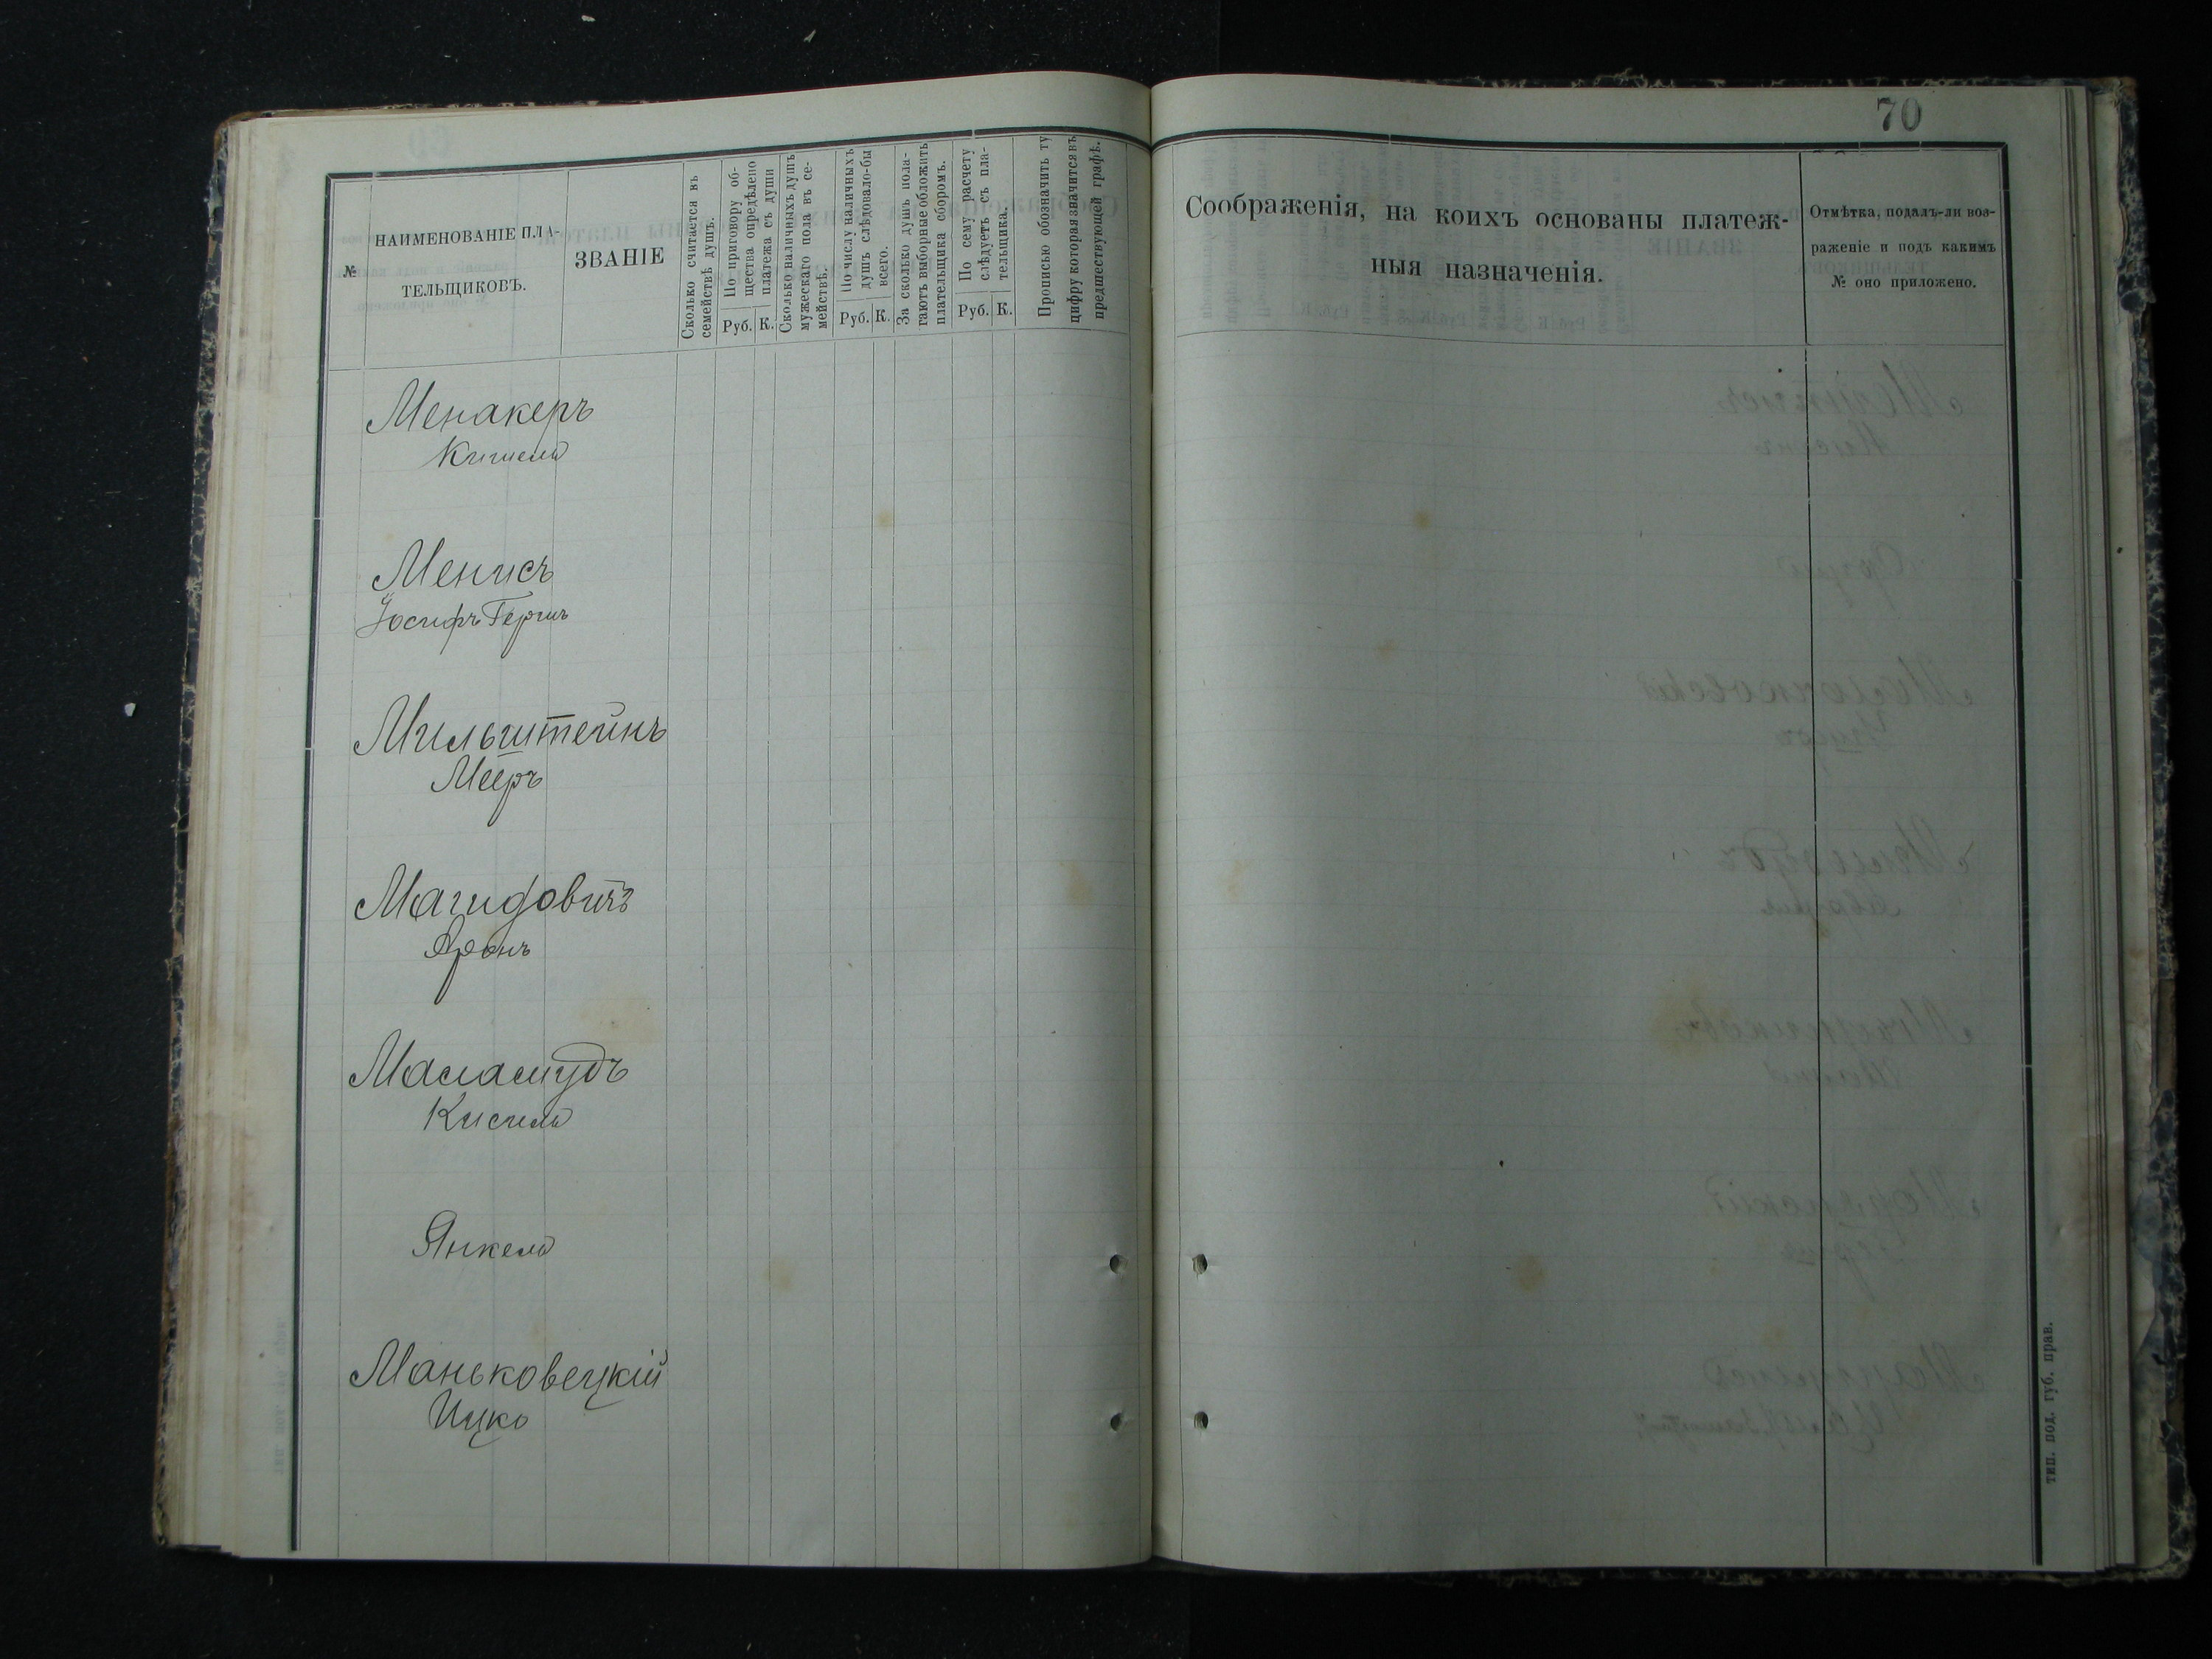 70
№
НАИМЕНОВАНІЕ ПЛА-
ТЕЛЬЩИКОВЪ.
ЗВАНІЕ
Сколько считается въ
семействѣ душъ.
По приговору об-
щества опредѣлено
платежа съ души
Руб. К.
Сколько наличныхъ душъ
мужескаго пола въ се-
мействѣ.
По числу наличныхъ
душъ слѣдовало-бы
всего.
Руб. К.
За сколько душъ пола-
гаютъ выборные обложить
плательщика сборомъ.
По сему расчету
слѣдуетъ съ пла-
тельщика.
Руб. К.
Прописью обозначить ту
цифру которая значится въ
предшествующей графѣ.
Соображенія, на коихъ основаны платеж-
ныя назначенія.
Отмѣтка, подалъ-ли воз-
раженіе и подъ какимъ
№ оно приложено.
Менакеръ
Менисъ
Іосифъ Гершъ
Мильштейнъ
Мееръ
Магидовичъ
Аронъ
Маламудъ
Кисиль
Янкель
Маньковецкій
Ицко
тип. под. губ. прав.